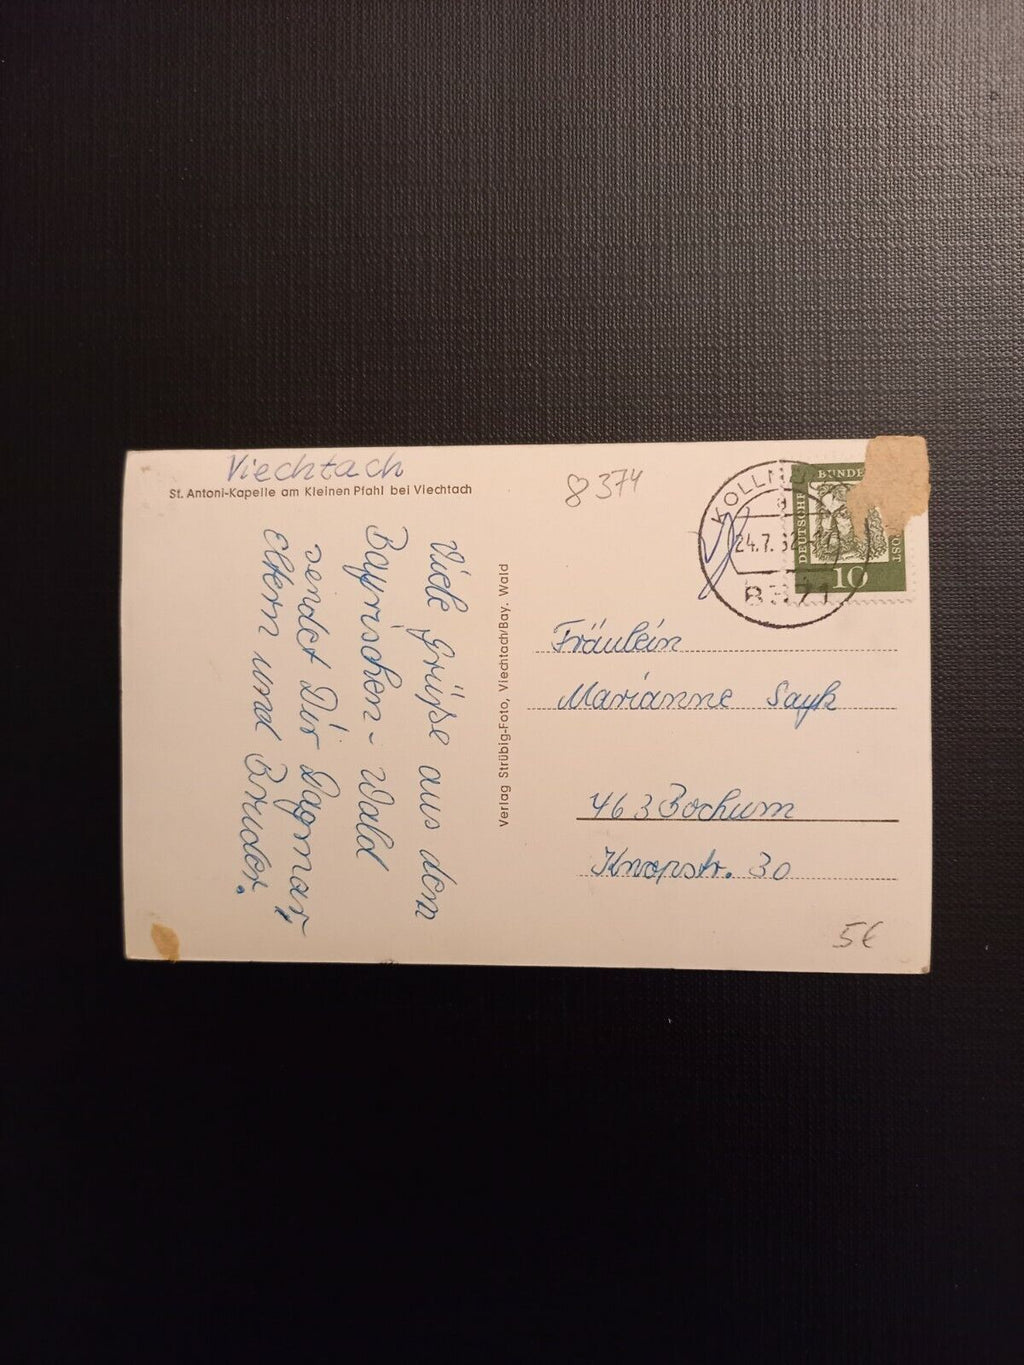 Viechtach
St. Antoni-Kapelle am Kleinen Pfahl bei Viechtach
Viele Grüße aus dem
Bayrischen-Wald
sendet Dir Dagmar,
Eltern und Bruder.
Verlag Strübig-Foto, Viechtach/Bay. Wald
8 374
KOLLN
24.7.62
DEUTSCHE
BUNDE
POST
10
Fräulein
Marianne Sayk
463 Bochum
Knopstr. 30
5€